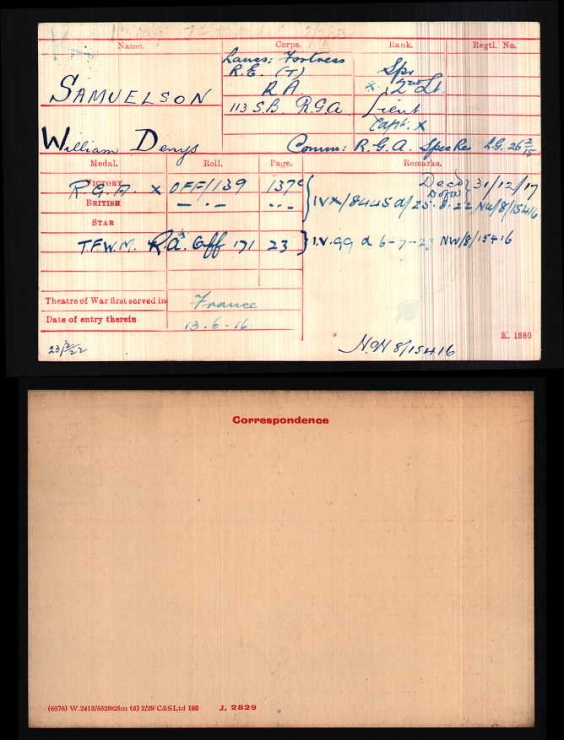 Name. Corps. Rank. Regtl. No.
SAMUELSON Lancs: Fortress
R.E. (T) Spr
R A x 2nd Lt
113 S.B. R.G.A Lieut
Capt. x
William Denys Comm: R.G.A. Spec Res L.G. 26
Medal. Roll. Page. Remarks.
VICTORY R.G.A. x OFF/139 137c Decd 31/12/17
BRITISH — . — IVX/8445 d/25.8.22 NW/8/15416
STAR
T.F.W.M. R.A. Off 171 23 I.V.99 d 6-7-23 NW/8/15416
Theatre of War first served in France
Date of entry therein 13.6.16
K. 1380
NW 8/15416
Correspondence
(6976) W.2413/552 2/20 C&SLtd 166 J. 2829